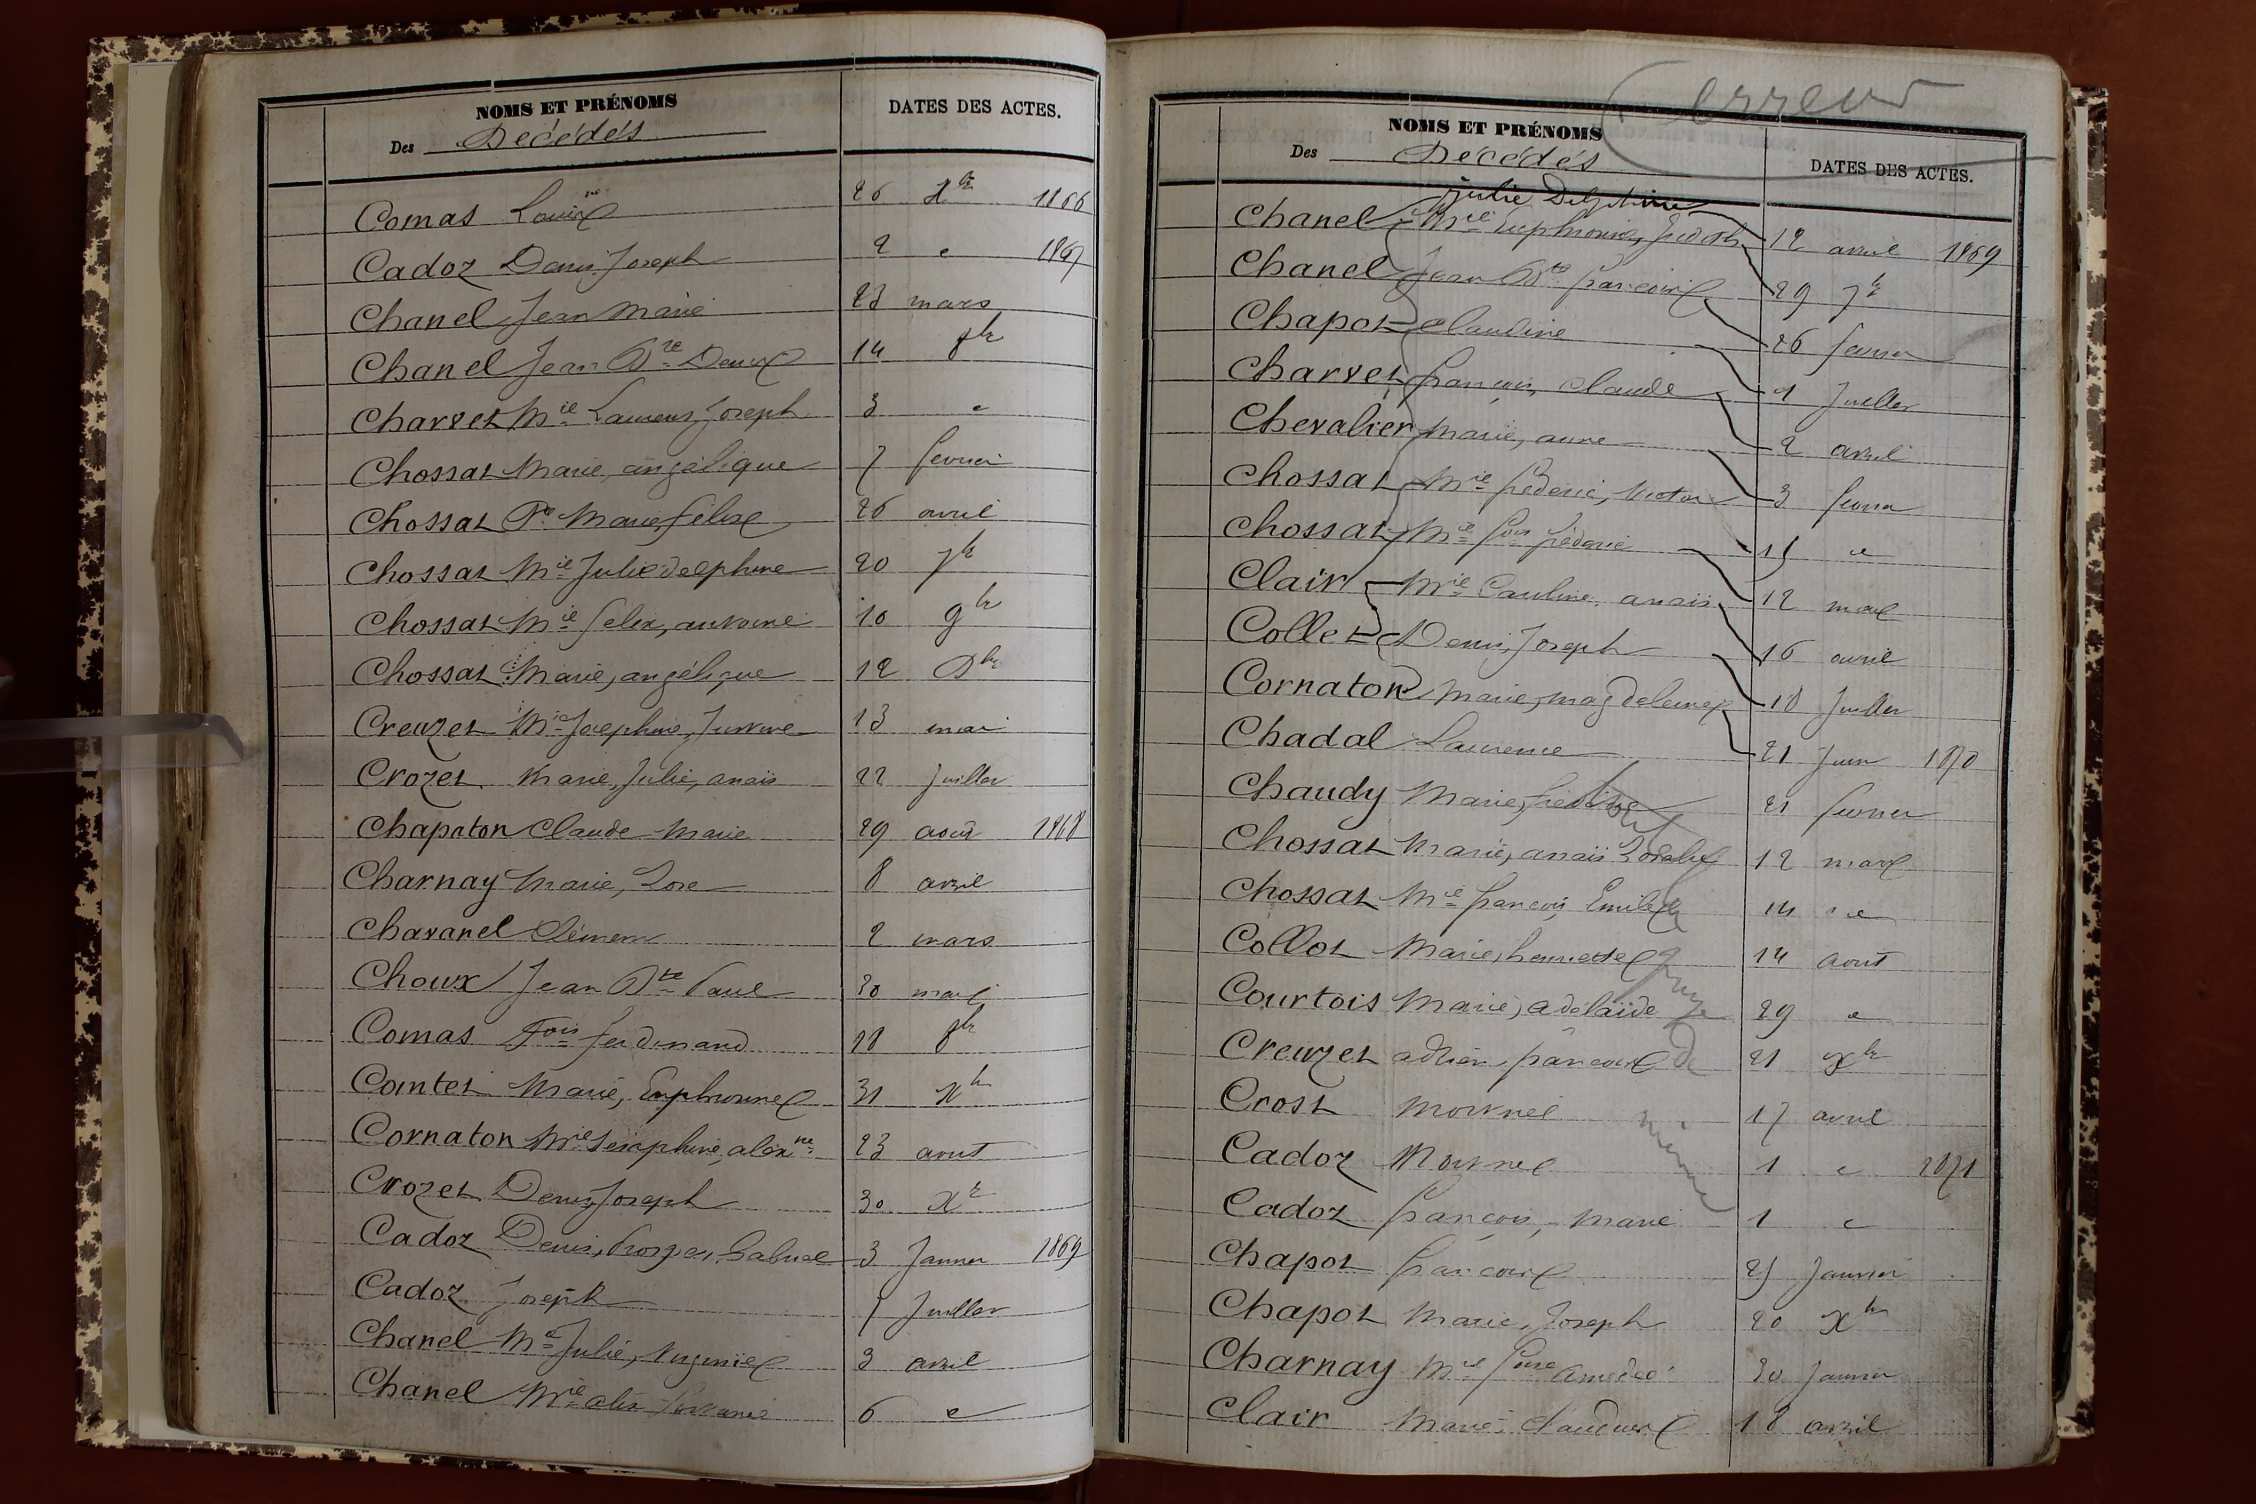 NOMS ET PRÉNOMS
Des Décédés
DATES DES ACTES.
Comas Louis 26 Xbre 1866
Cadoz Denis Joseph 2 " 1867
Chanel Jean Marie 23 mars
Chanel Jean Bte Denis 14 8bre
Charvet Mie Laurent Joseph 3 "
Chossat Marie angélique 7 fevrier
Chossat Marie felix 26 avril
Chossat Mie Julie delphine 20 7bre
Chossat Mie felix, antoine 10 9bre
Chossat Marie, angélique 12 Xbre
Creuzet Mie Josephine, 13 mai
Crozet Marie, Julie, anaïs 22 Juillet
Chapaton Claude Marie 29 août 1868
Charnay Marie, Rose 8 avril
Chavanel Clément 2 mars
Choux Jean Bte Paul 20 mars
Comas Fois ferdinand 28 8bre
Comtet Marie, Euphrosine 31 Xbre
Cornaton Mie Seraphine, alexne 23 aout
Crozet Denis Joseph 30 Xbre
Cadoz Denis, Prosper, Gabriel 3 Janvier 1869
Cadoz Joseph 7 Juillet
Chanel Mie Julie, Virginie 3 avril
Chanel Mie alix 6 "
erreur
NOMS ET PRÉNOMS
Des Décédés
DATES DES ACTES.
Julie Delphine
Chanel Mie Euphrosine, Judith 12 avril 1869
Chanel Jean Bte françois 29 7bre
Chapot Claudine 26 fevrier
Charvet françois, Claude 9 Juillet
Chevalier Marie, anne 2 avril
Chossat Mie frederic, Victor 3 fevrier
Chossat Mie fois frederic 15 "
Clair Mie Pauline, anaïs 12 mai
Collet Denis, Joseph 16 avril
Cornaton Marie, magdeleine 18 Juillet
Chadal Laurence 21 Juin 1870
Chaudy Marie, 21 fevrier
Chossat Marie, anaïs Rosalie 12 mars
Chossat Mie françois Emile 14 "
Collot Marie, henriette 14 aout
Courtois Marie, adélaïde 29 "
Creuzet adrien, françois 21 Xbre
Crost Mort né 17 avril
Cadoz Mort né 1 " 1871
Cadoz françois, Marie 1 "
Chapot françois 25 Janvier
Chapot Marie, Joseph 20 Xbre
Charnay Mie amédée 30 Janvier
Clair Marie Claudine 18 avril